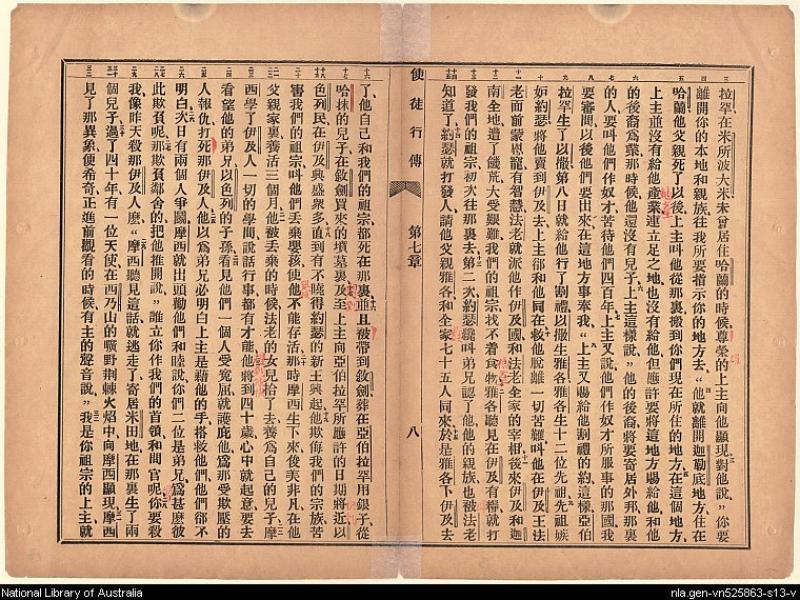 拉罕在米所波大米未曾居住哈蘭的時候尊榮的上主向他顯現對他說你要
離開你的本地和親族往我所要指示你的地方去他就離開迦勒底地方住在
哈蘭他父親死了以後上主叫他從那裏搬到你們現在所住的地方在這個地方
上主並沒有給他產業連立足之地也沒有給他但應許要將這地方賜給他和他
的後裔爲業那時候他還沒有兒子上主這樣說他的後裔將要寄居外邦那裏
的人要叫他們作奴才苦待他們四百年上主又說他們作奴才所服事的那國我
要審問以後他們要出來在這地方事奉我上主又賜給他割禮的約這樣亞伯
拉罕生了以撒第八日就給他行了割禮以撒生雅各雅各生十二位先祖先祖嫉
妬約瑟將他賣到伊及去上主卻和他同在救他脫離一切苦難叫他在伊及王法
老面前蒙恩寵有智慧法老就派他作伊及國和法老全家的宰相後來伊及和迦
南全地遭了饑荒大受艱難我們的祖宗找不着食物雅各聽見在伊及有糧就打
發我們的祖宗初次往那裏去第二次約瑟纔叫弟兄認了他他的親族也被法老
知道了約瑟就打發人請他父親雅各和全家七十五人同來於是雅各下伊及去
使徒行傳 第七章 八
了他自己和我們的祖宗都死在那裏並且被帶到敘劍葬在亞伯拉罕用銀子從
哈抹的兒子在敘劍買來的墳墓裏及至上主向亞伯拉罕所應許的日期將近以
色列民在伊及興盛衆多直到有不曉得約瑟的新王興起他欺侮我們的宗族苦
害我們的祖宗叫他們丟棄嬰孩使他不能存活那時摩西生下來俊美非凡在他
父親家裏養活三個月他被丟棄的時候法老的女兒拾了去養爲自己的兒子摩
西學了伊及人一切的學問說話行事都有才能他將到四十歲心中就起意要去
看望他的弟兄以色列的子孫看見他們一個人受冤屈就護庇他爲那受欺壓的
人報仇打死那伊及人他以爲弟兄必明白上主是藉他的手搭救他們他們卻不
明白次日有兩個人爭鬬摩西就出頭勸他們和睦說你們二位是弟兄爲甚麽彼
此欺負呢那欺負鄰舍的把他推開說誰立你作我們的首領和問官呢你要殺
我像昨天殺那伊及人麽摩西聽見這話就逃走了寄居米田地在那裏生了兩
個兒子過了四十年有一位天使在西乃山的曠野荆棘火焰中向摩西顯現摩西
見了那異象便希奇正進前觀看的時候有主的聲音說我是你祖宗的上主就
National Library of Australia
nla.gen-vn525863-s13-v